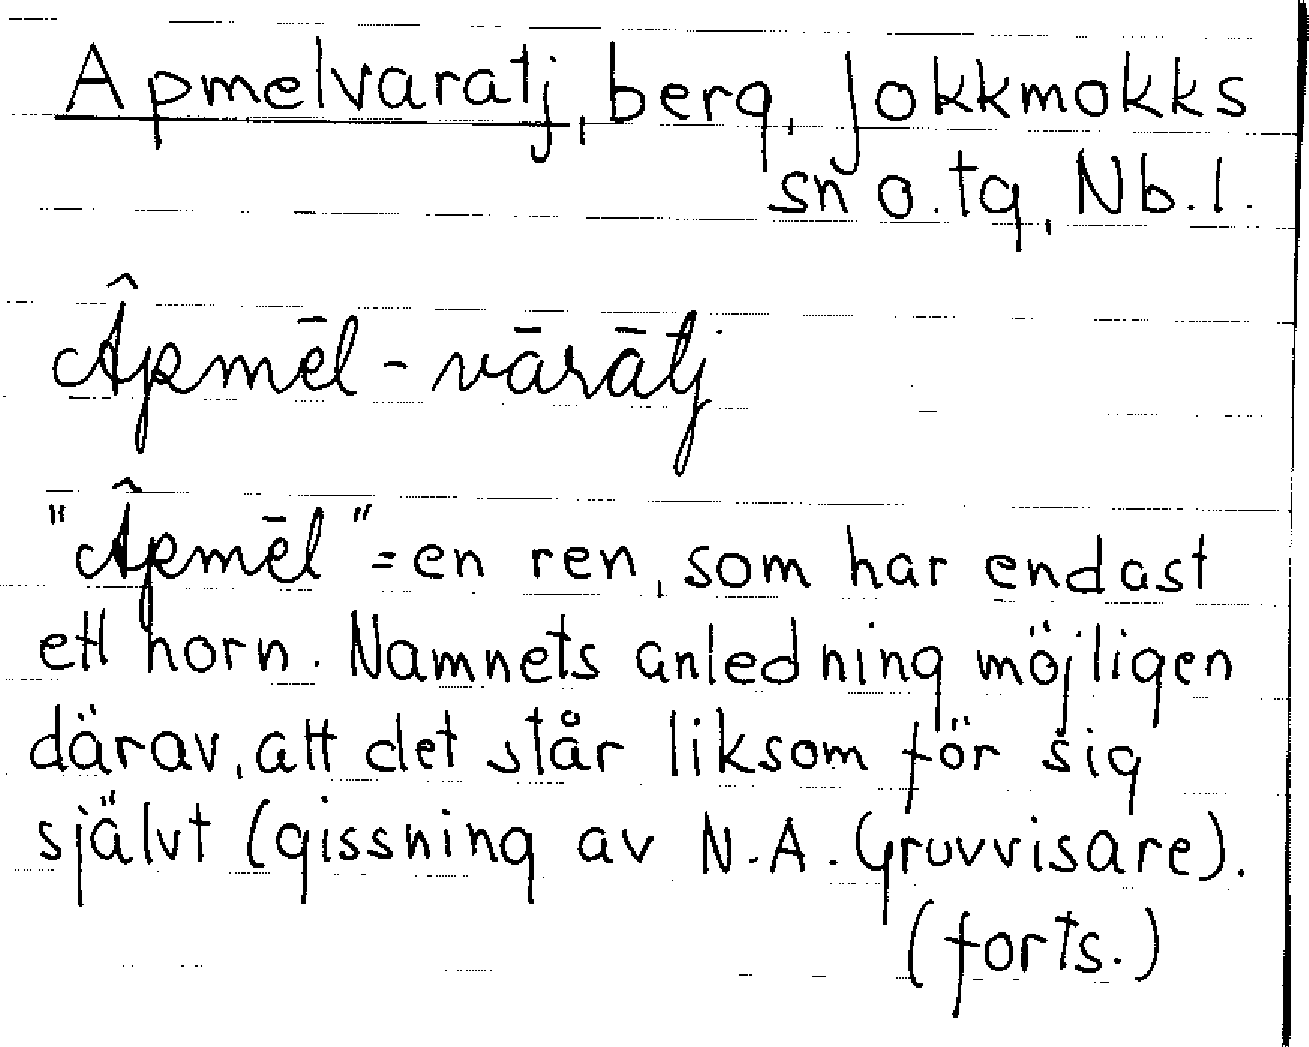 Apmelvaratj, berg, Jokkmokks
sn o. tg, Nb. l.
Âpmēl-vārātj
"Âpmēl" = en ren, som har endast
ett horn. Namnets anledning möjligen
därav, att det står liksom för sig
självt (gissning av N. A. Gruvvisare).
(forts.)